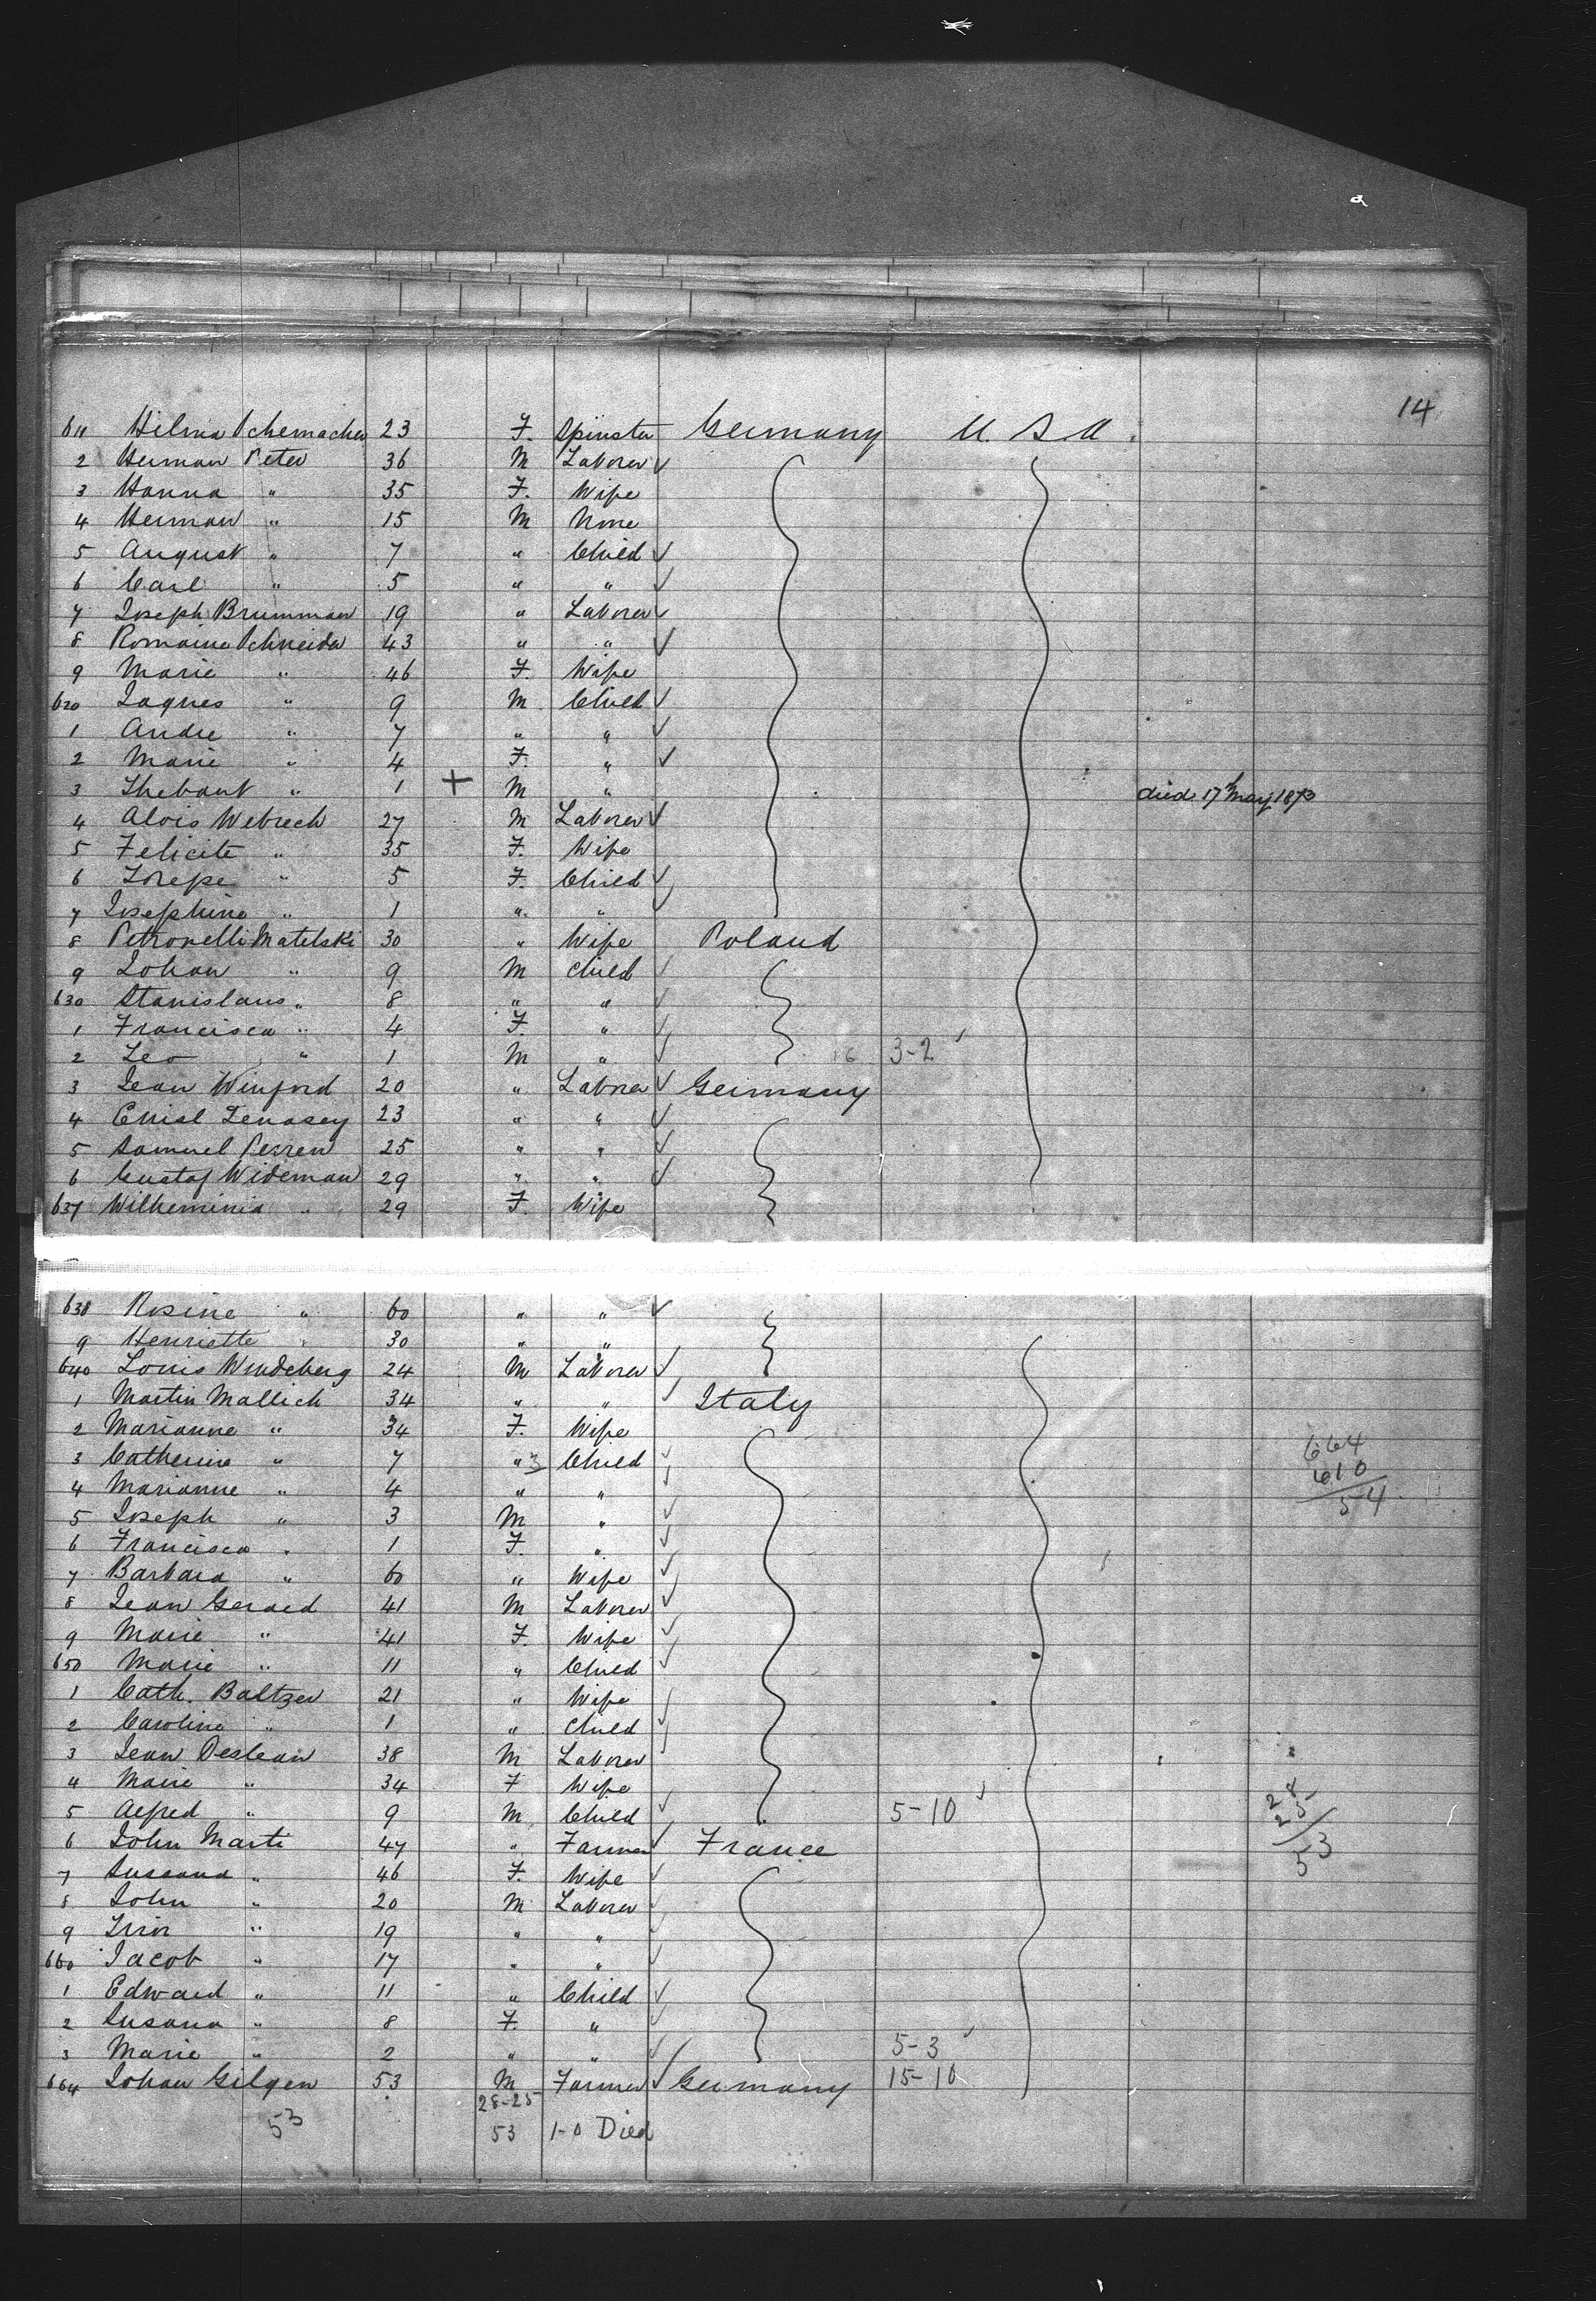 14
611 Hilma Schemacher 23 F. Spinster Germany U. S. A.
2 Herman Peter 36 M Laborer
3 Hanna " 35 F. Wife
4 Herman " 15 M None
5 August " 7 " Child
6 Carl " 5 " "
7 Joseph Brumman 19 " Laborer
8 Romaine Schneider 43 " "
9 Marie " 46 F. Wife
620 Jaques " 9 M Child
1 Andre " 7 " "
2 Marie " 4 F. "
3 Thebaut " 1 + M " died 17th May 1873
4 Alois Webrech 27 M Laborer
5 Felicite " 35 F. Wife
6 " 5 F. Child
7 Josephine " 1 " "
8 Petronelli Matelski 30 " Wife Poland
9 Johan " 9 M Child
630 Stanislaus " 8 " "
1 Francisca " 4 F. "
2 Leo " 1 M " 16 3-2
3 Jean Winford 20 " Laborer Germany
4 Christ 23 " "
5 Samuel Perren 25 " "
6 Gustaf Wideman 29 " "
637 Wilheminia " 29 F. Wife
638 Rosine " 60 " "
9 Henriette " 30 " "
640 Louis Windeberg 24 M Laborer
1 Martin Mallich 34 " " Italy
2 Marianne " 34 F. Wife
3 Catherine " 7 " 3 Child
4 Marianne " 4 " "
5 Joseph " 3 M "
6 Francisca " 1 F. "
7 Barbara " 60 " Wife
8 Jean Geraed 41 M Laborer
9 Marie " 41 F. Wife
650 Marie " 11 " Child
1 Cath. Baltzer 21 " Wife
2 Caroline " 1 " Child
3 Jean Deslean 38 M Laborer
4 Marie " 34 F Wife
5 Alfred " 9 M Child 5-10
6 John Marti 47 " Farmer France
7 Susanna " 46 F. Wife
8 John " 20 M Laborer
9 " 19 " "
660 Jacob " 17 " "
1 Edward " 11 " Child
2 Susana " 8 F. "
3 Marie " 2 " " 5-3
664 Johan Gilgen 53 M Farmer Germany 15-10
28-25
53 53 1-0 Died
664
610
54
28
25
53